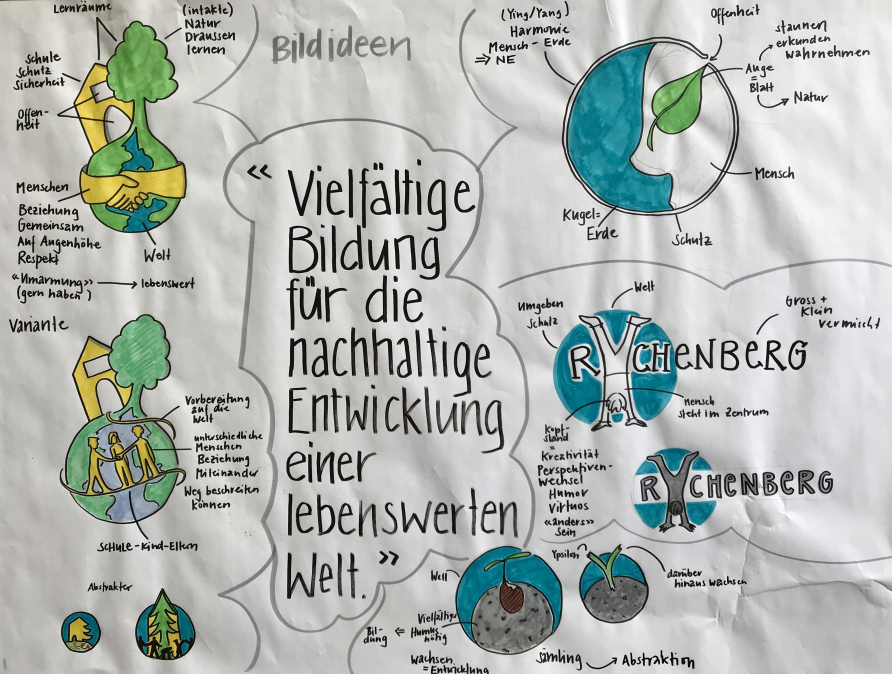 Bildideen
Lernräume
(intakte)
Natur
Draussen
lernen
Schule
Schutz
Sicherheit
Offen-
heit
Menschen
Beziehung
Gemeinsam
Auf Augenhöhe
Respekt
Welt
«Umarmung» → lebenswert
(gern haben)
Variante
Vorbereitung
auf die
Welt
unterschiedliche
Menschen
Beziehung
Miteinander
Weg beschreiten
können
SCHULE-Kind-Eltern
Abstrakter
« Vielfältige
Bildung
für die
nachhaltige
Entwicklung
einer
lebenswerten
Welt. »
(Ying/Yang)
Harmonie
Mensch - Erde
⇒ NE
Offenheit
staunen
erkunden
wahrnehmen
Auge
=
Blatt
Natur
Mensch
Kugel=
Erde
Schutz
Welt
Umgeben
Schutz
Gross +
Klein
vermischt
RYCHENBERG
Mensch
steht im Zentrum
Kopf-
stand
=
Kreativität
Perspektiven-
wechsel
Humor
Virtuos
«anders»
Sein
RYCHENBERG
Welt
Ypsilon
darüber
hinaus wachsen
Vielfältiger
Bil-
dung
⇐ Humus
nötig
Wachsen
= Entwicklung
Sämling → Abstraktion